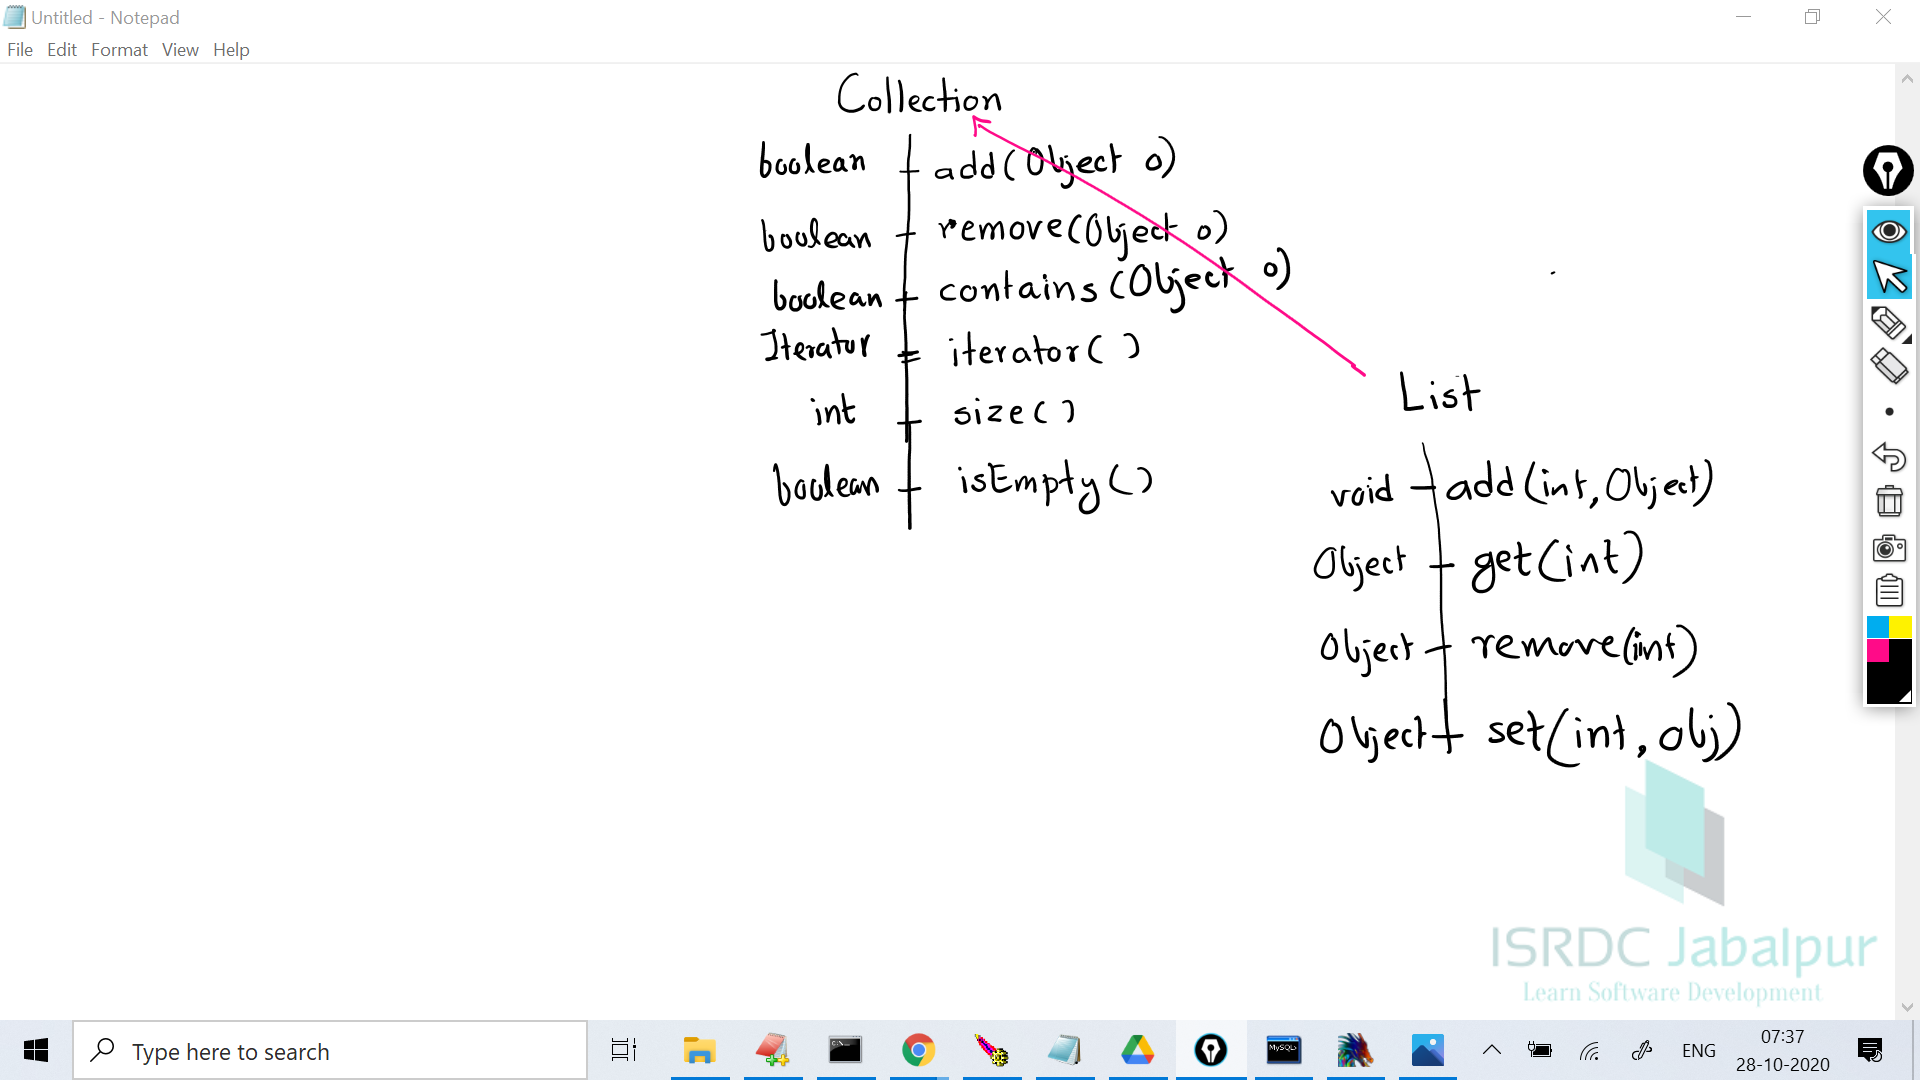 Untitled - Notepad
File Edit Format View Help
Collection
boolean add(Object o)
boolean remove(Object o)
boolean contains(Object o)
Iterator iterator( )
int size( )
boolean isEmpty( )
List
void add(int, Object)
Object get(int)
Object remove(int)
Object set(int, obj)
ISRDC Jabalpur
Learn Software Development
Type here to search
C:\_
MySQL
ENG
07:37
28-10-2020